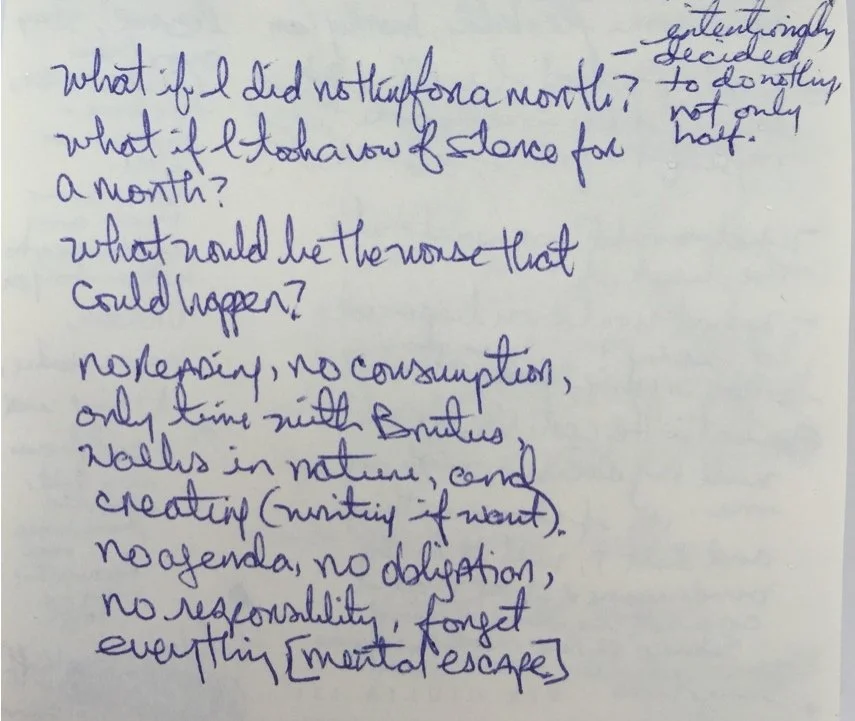 What if I did nothing for a month?
- intentionally
decided
to do nothing
not only
half.
what if I took a vow of silence for
a month?
what would be the worse that
could happen?
no reading, no consumption,
only time with Brutus,
walks in nature, and
creating (writing if want).
no agenda, no obligation,
no responsibility, forget
everything [mental escape]